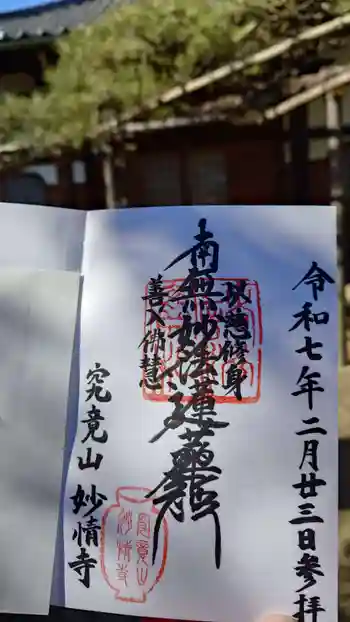 令和七年二月廿三日参拝
以慈修身
南無妙法蓮華経
善入佛慧
究竟山 妙情寺
究竟山
妙情寺